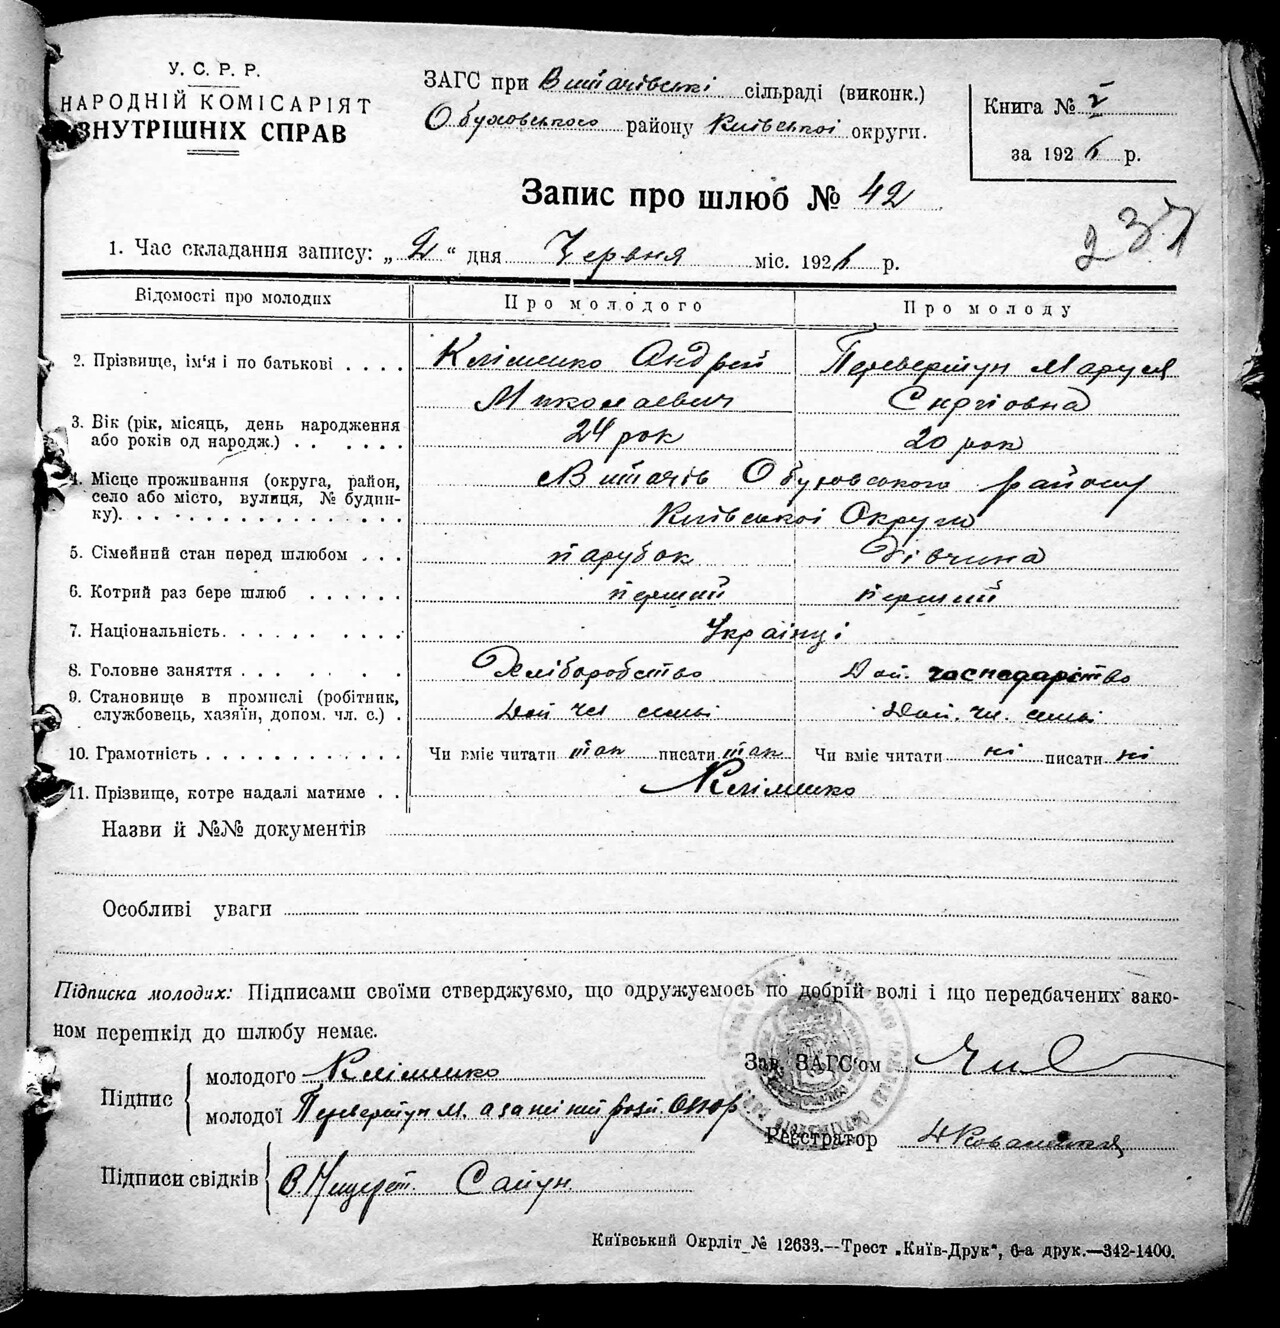 У. С. Р. Р.
НАРОДНІЙ КОМІСАРІЯТ
ВНУТРІШНІХ СПРАВ
ЗАГС при Витачівські сільраді (виконк.)
Обуховського району Київської округи.
Книга №
за 1926 р.
Запис про шлюб № 42
237
1. Час складання запису: „2“ дня Червня міс. 1926 р.
Відомості про молодих
Про молодого
Про молоду
2. Прізвище, ім‘я і по батькові . . . .
Кліменко Андрей
Миколаевич
Перевертун Маруся
Сиргіовна
3. Вік (рік, місяць, день народження
або років од народж.) . . . . . .
24 рок
20 рок
4. Місце проживання (округа, район,
село або місто, вулиця, № будин-
ку). . . . . . . . . . . . . . . .
Витачів Обуховського району
Київськоі Округи
5. Сімейний стан перед шлюбом . . .
парубок
Дівчина
6. Котрий раз бере шлюб . . . . . .
перший
перший
7. Національність. . . . . . . . . .
Украінці
8. Головне заняття . . . . . . . . .
Хліборобство
Дом. господарство
9. Становище в промислі (робітник,
службовець, хазяїн, допом. чл. с.) .
Доп чл семьі
Доп. чл. семьі
10. Грамотність . . . . . . . . . . . .
Чи вміє читати так писати так
Чи вміє читати ні писати ні
11. Прізвище, котре надалі матиме . .
Кліменко
Назви й №№ документів
Особливі уваги
Підписка молодих: Підписами своїми стверджуємо, що одружуємось по добрій волі і що передбачених зако-
ном перешкід до шлюбу немає.
Підпис
молодого Кліменко
молодої Перевертун М. а за неі
Зав. ЗАГС‘ом
Реєстратор Коваленко
Підписи свідків
Київський Окрліт № 12633.—Трест „Київ-Друк“, 6-а друк.—342-1400.